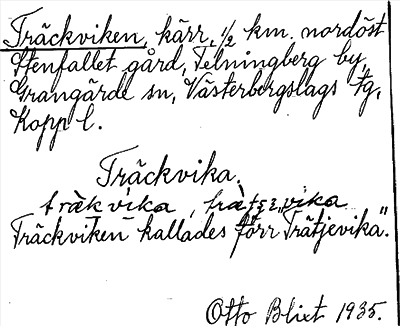 Träckviken, kärr, 1/2 km. nordöst
Stenfallet gård, Telningberg by,
Grangärde sn, Västerbergslags fg,
Kopp l.
Träckvika.
träkvika,
Träckviken kallades förr "Trätjevika."
Otto Blixt 1935.